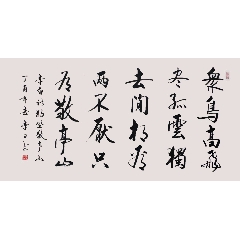 衆鳥高飛
尽孤雲獨
去閒相看
两不厭只
有敬亭山
李白詩獨坐敬亭山
丁酉年